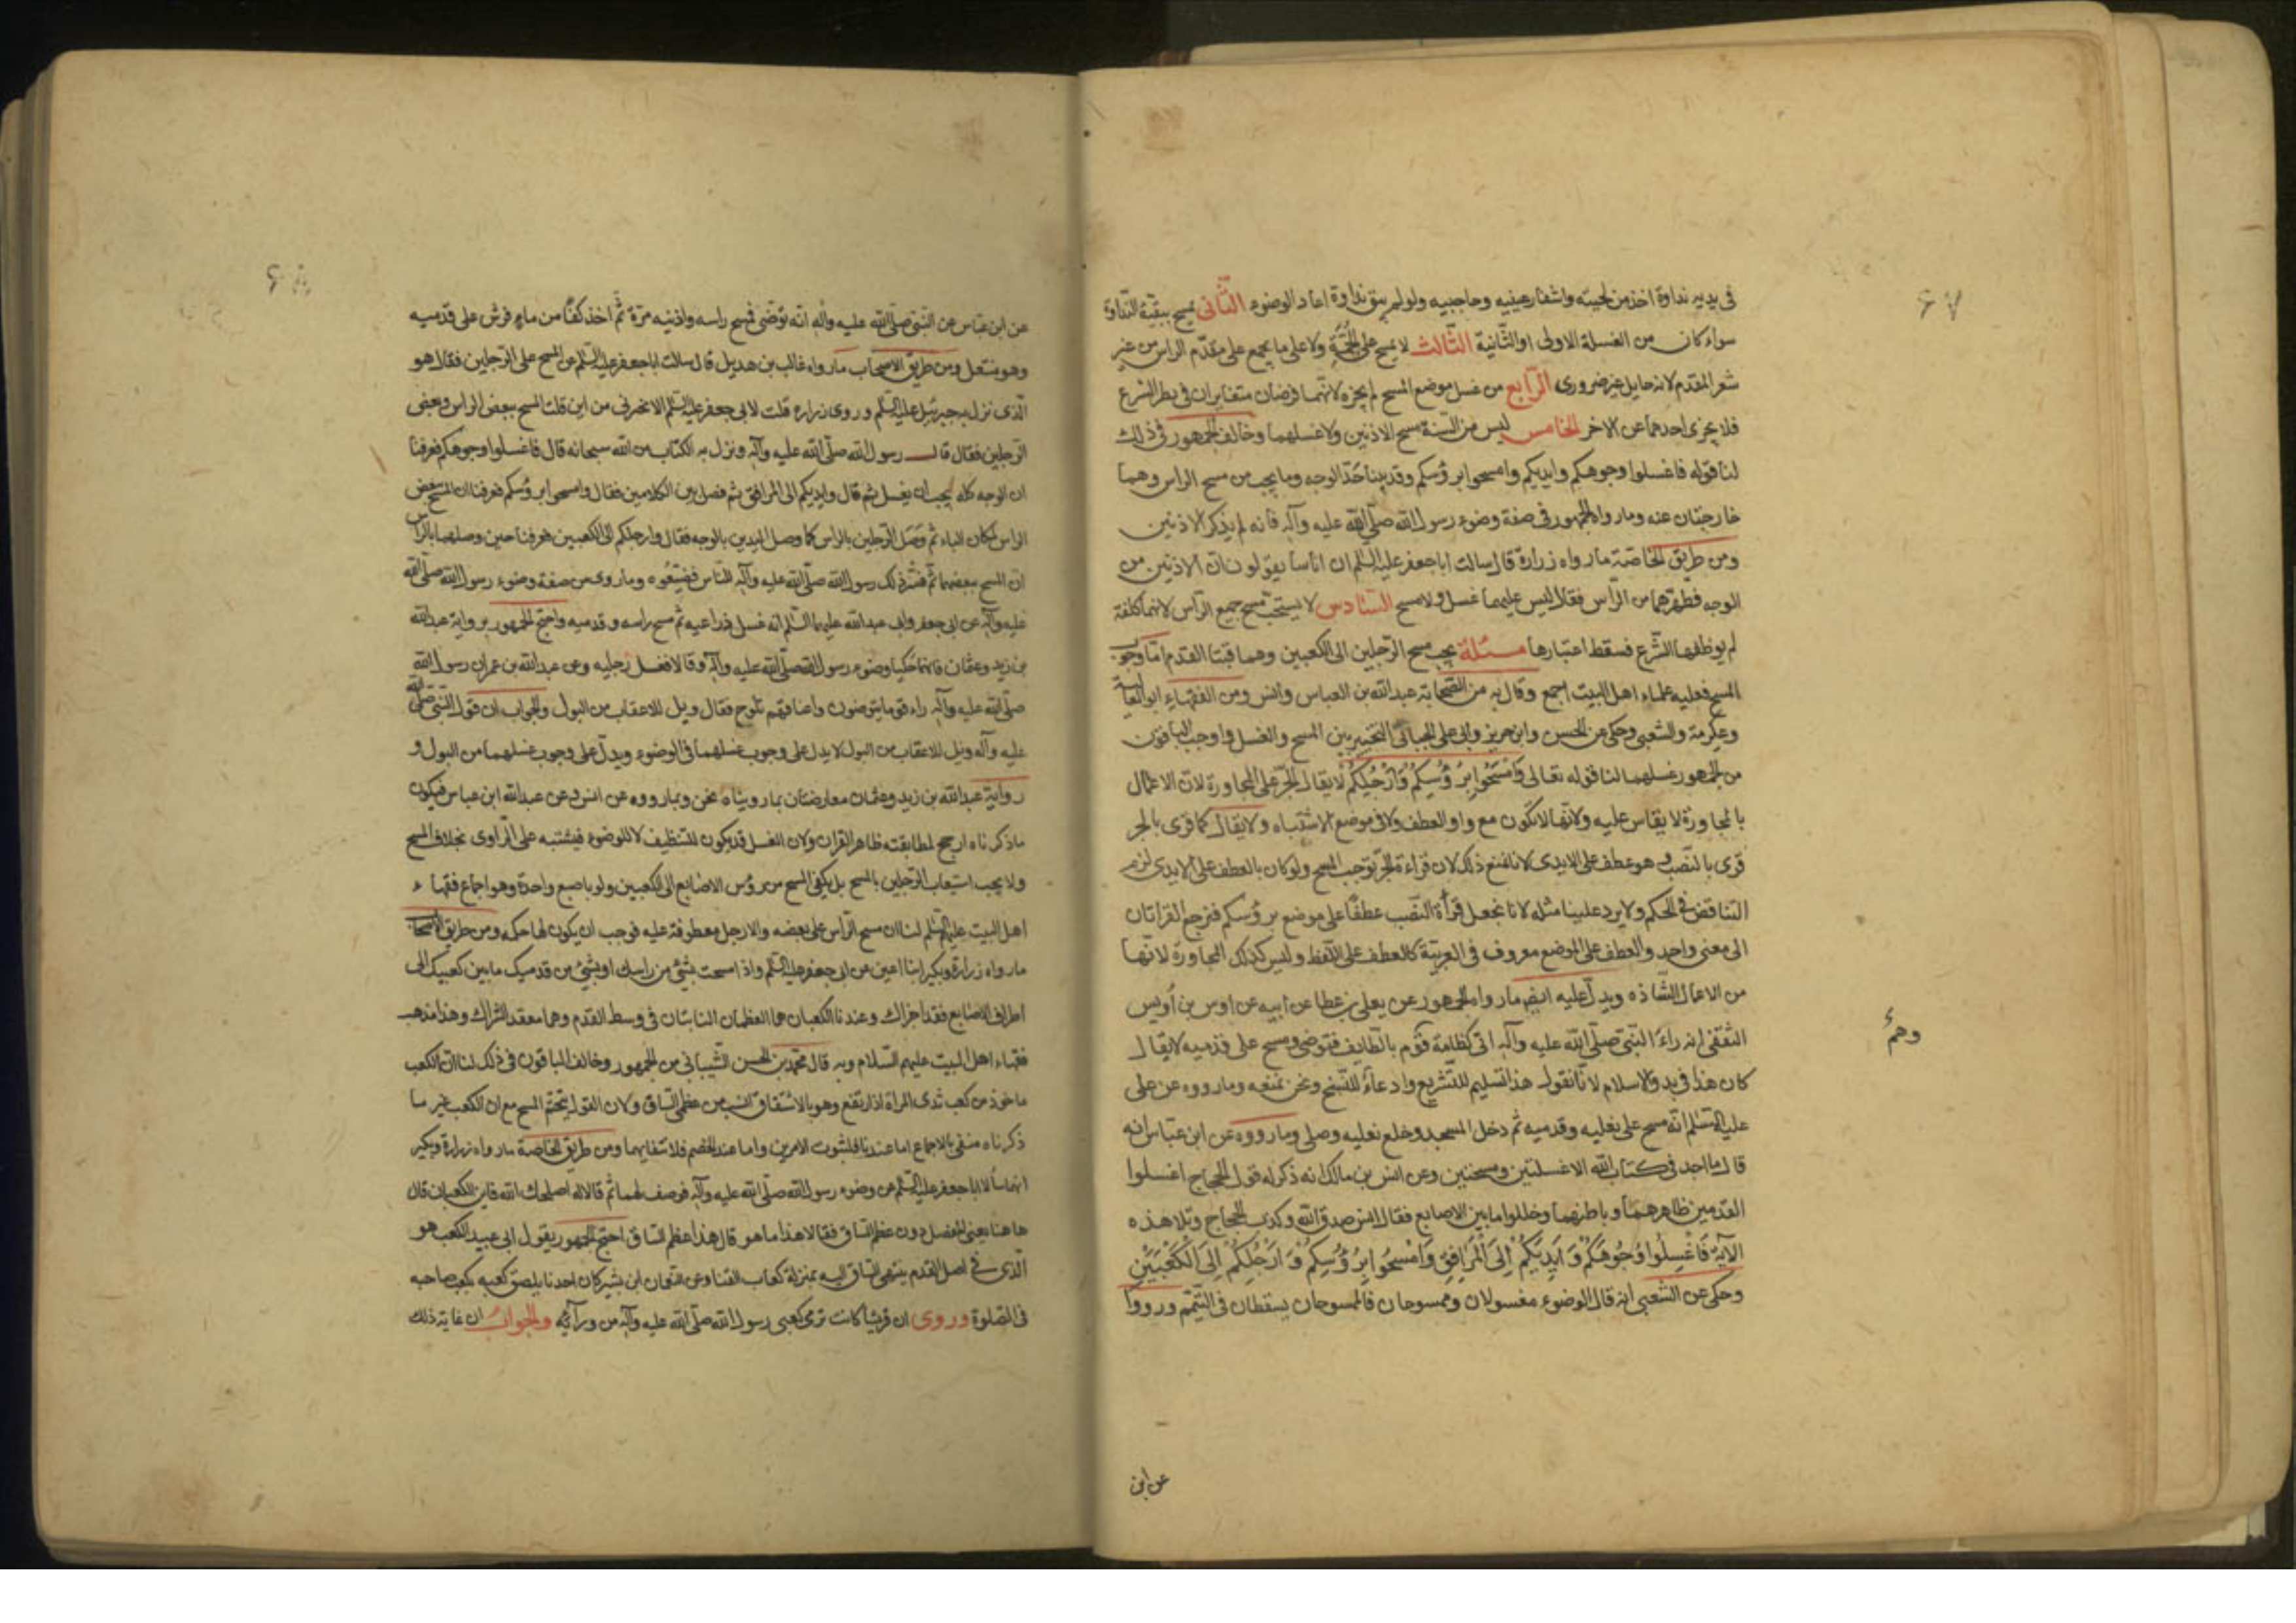 ٦٧
فى يديه نداوة اخذ من لحيته واشفار عينيه وحاجبيه ولو لم يبق نداوة اعاد الوضوء الثانى يمسح ببقية النداوة
سواء كان من الغسلة الاولى او الثانية الثالث لا يمسح على الجمة ولا على ما يجمع على مقدم الراس من غير
شعر المقدم لانه حايل غير ضرورى الرابع من غسل موضع المسح لم يجزه لانهما فرضان متغايران فى نظر الشرع
فلا يجزى احدهما عن الاخر الخامس ليس من السنة مسح الاذنين ولا غسلهما وخالف الجمهور فى ذلك
لنا قوله فاغسلوا وجوهكم وايديكم وامسحوا برؤسكم وقد بينا حد الوجه وما يجب من مسح الراس وهما
خارجتان عنه وما رواه الجمهور فى صفة وضوء رسول الله صلى الله عليه وآله فانه لم يذكر الاذنين
ومن طريق الخاصة ما رواه زرارة قال سالت ابا جعفر عليه السلم ان اناسا يقولون ان الاذنين من
الوجه فظهرهما من الراس فقال ليس عليهما غسل ولا مسح السادس لا يستحب مسح جميع الرأس لانها كلفة
لم يوظفها الشرع فسقط اعتبارها مسئلة يجب مسح الرجلين الى الكعبين وهما قبتا القدم اما وجوب
المسح فعليه علماء اهل البيت اجمع وقال به من الصحابة عبدالله بن العباس وانس ومن الفقهاء ابو العالية
وعكرمة والشعبى وحكى عن الحسن وابن جرير وابى على الجبائى التخيير بين المسح والغسل واوجب الباقون
من الجمهور غسلهما لنا قوله تعالى وَامْسَحُوا بِرُؤُسِكُمْ وَاَرْجُلِكُمْ لا يقال الجر على المجاورة لان الاعمال
بالمجاورة لا يقاس عليه ولانها لا تكون مع واو العطف ولا فى موضع الاشتباه ولا يقال كما قرى بالجر
قرى بالنصب وهو عطف على الايدى لانا نمنع ذلك لان قراءة الجر توجب المسح ولو كان بالعطف على الايدى لزم
التناقض فى الحكم ولا يرد علينا مثله لانا نجعل قرأة النصب عطفا على موضع برؤسكم فنرجع القراتان
الى معنى واحد والعطف على الموضع معروف فى العربية كالعطف على اللفظ وليس كذلك المجاورة لانها
من الاعمال الشاذه ويدل عليه ايضا ما رواه الجمهور عن يعلى بن عطا عن ابيه عن اوس بن أويس
الثقفى انه راء النبى صلى الله عليه وآله اتى كظامة قوم بالطايف فتوضى ومسح على قدميه لا يقال
وهم
كان هذا فى بدو الاسلام لانا نقول هذا تسليم للتشريع وادعاء للنسخ ونحن نمنعه وما رووه عن على
عليه السلم انه مسح على نعليه وقدميه ثم دخل المسجد وخلع نعليه وصلى وما رووه عن ابن عباس انه
قال ما اجد فى كتاب الله الا غسلتين ومسحتين وعن انس بن مالك انه ذكر له قول الحجاج اغسلوا
القدمين ظاهرهما وباطنهما وخللوا ما بين الاصابع فقال انس صدق الله وكذب الحجاج وتلا هذه
الآية فَاغْسِلُوا وُجُوهَكُمْ وَاَيْدِيَكُمْ اِلَى الْمَرَافِقِ وَامْسَحُوا بِرُؤُسِكُمْ وَاَرْجُلِكُمْ اِلَى الْكَعْبَيْنِ
وحكى عن الشعبى انه قال الوضوء مغسولان وممسوحان فالممسوحان يسقطان فى التيمم ورووا
عن ابن
٦٨
عن ابن عباس عن النبى صلى الله عليه واله انه توضى فمسح راسه واذنيه مرة ثم اخذ كفا من ماء فرش على قدميه
وهو منتعل ومن طريق الاصحاب ما رواه غالب بن هديل قال سالت ابا جعفر عليه السلم عن المسح على الرجلين فقال هو
الذى نزل به جبرئيل عليه السلم وروى زراره قلت لابى جعفر عليه السلم الا تخبرنى من اين قلت المسح ببعض الراس وبعض
الرجلين فقال قال رسول الله صلى الله عليه وآله ونزل به الكتاب من الله سبحانه قال فاغسلوا وجوهكم فعرفنا
ان الوجه كله يجب ان يغسل ثم قال وايديكم الى المرافق ثم فصل بين الكلامين فقال وامسحوا برؤسكم فعرفنا ان المسح ببعض
الراس لمكان الباء ثم وصل الرجلين بالراس كما وصل اليدين بالوجه فقال وارجلكم الى الكعبين فعرفنا حين وصلهما بالراس
ان المسح ببعضهما ثم فسر ذلك رسول الله صلى الله عليه وآله للناس فضيعوه وما روى من صفة وضوء رسول الله صلى الله
عليه وآله عن ابى جعفر وابى عبدالله عليهما السلم انه غسل ذراعيه ثم مسح راسه وقدميه واحتج الجمهور برواية عبدالله
بن زيد وعثمان فانهما حكيا وضوء رسول الله صلى الله عليه وآله وقالا فغسل رجليه وعن عبدالله بن عمران رسول الله
صلى الله عليه وآله راء قوما يتوضون واعقابهم تلوح فقال ويل للاعقاب من البول والجواب ان قول النبى صلى الله
عليه وآله ويل للاعقاب من البول لا يدل على وجوب غسلهما فى الوضوء ويدل على وجوب غسلهما من البول و
رواية عبدالله بن زيد وعثمان معارضتان بما رويناه نحن وبما رووه عن انس وعن عبدالله ابن عباس فيكون
ما ذكرناه ارجح لمطابقته ظاهر القران ولان الغسل قد يكون للتنظيف لا للوضوء فيشتبه على الراوى بخلاف المسح
ولا يجب استيعاب الرجلين بالمسح بل يكفى المسح من رؤس الاصابع الى الكعبين ولو باصبع واحدة وهو اجماع فقهاء
اهل البيت عليهم السلم لنا ان مسح الرأس على بعضه والارجل معطوفة عليه فوجب ان يكون لها حكمه ومن طريق الاصحاب
ما رواه زرارة وبكير ابنا اعين عن ابى جعفر عليه السلم واذا مسحت بشئ من راسك او بشئ من قدميك ما بين كعبيك الى
اطراف الاصابع فقد اجزاك وعندنا الكعبان هما العظمان النابتان فى وسط القدم وهما معقد الشراك وهذا مذهب
فقهاء اهل البيت عليهم السلام وبه قال محمد بن الحسن الشيبانى من الجمهور وخالف الباقون فى ذلك لنا ان الكعب
ماخوذ من كعب ثدى المراة اذا ارتفع وهو بالاشتقاق انسب من عظمى الساق ولان القول بتحتم المسح مع ان الكعب غير ما
ذكرناه منفى بالاجماع اما عندنا فلثبوت الامرين واما عند الخصم فلانتفائهما ومن طريق الخاصة ما رواه زرارة وبكير
انهما سألا ابا جعفر عليه السلم عن وضوء رسول الله صلى الله عليه وآله فوصف لهما ثم قالا له اصلحك الله فاين الكعبان قال
هاهنا يعنى المفصل دون عظم الساق فقالا هذا ما هو قال هذا عظم الساق احتج الجمهور بقول ابى عبيد الكعب هو
الذى فى اصل القدم ينتهى الساق اليه بمنزلة كعاب القنا وعن النعمان ابن بشير كان احدنا يلصق كعبه بكعب صاحبه
فى الصلوة وروى ان قريشا كانت ترمى كعبى رسول الله صلى الله عليه وآله من ورآئه والجواب ان غاية ذلك